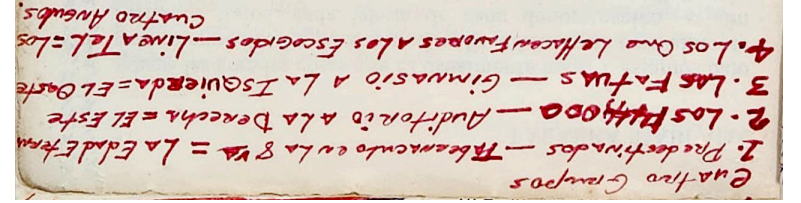 Cuatro Grupos
1. Predestinados — Tabernaculo en La 8 va = La Edad Eterna
2. Los 144,000 — Auditorio A La Derecha = El Este
3. Las Fatuas — Gimnasio A La Isquierda = El Oeste
4. Los Que Le Hacen Favores A Los Escogidos — Linea Tel = Los
Cuatro Angulos.